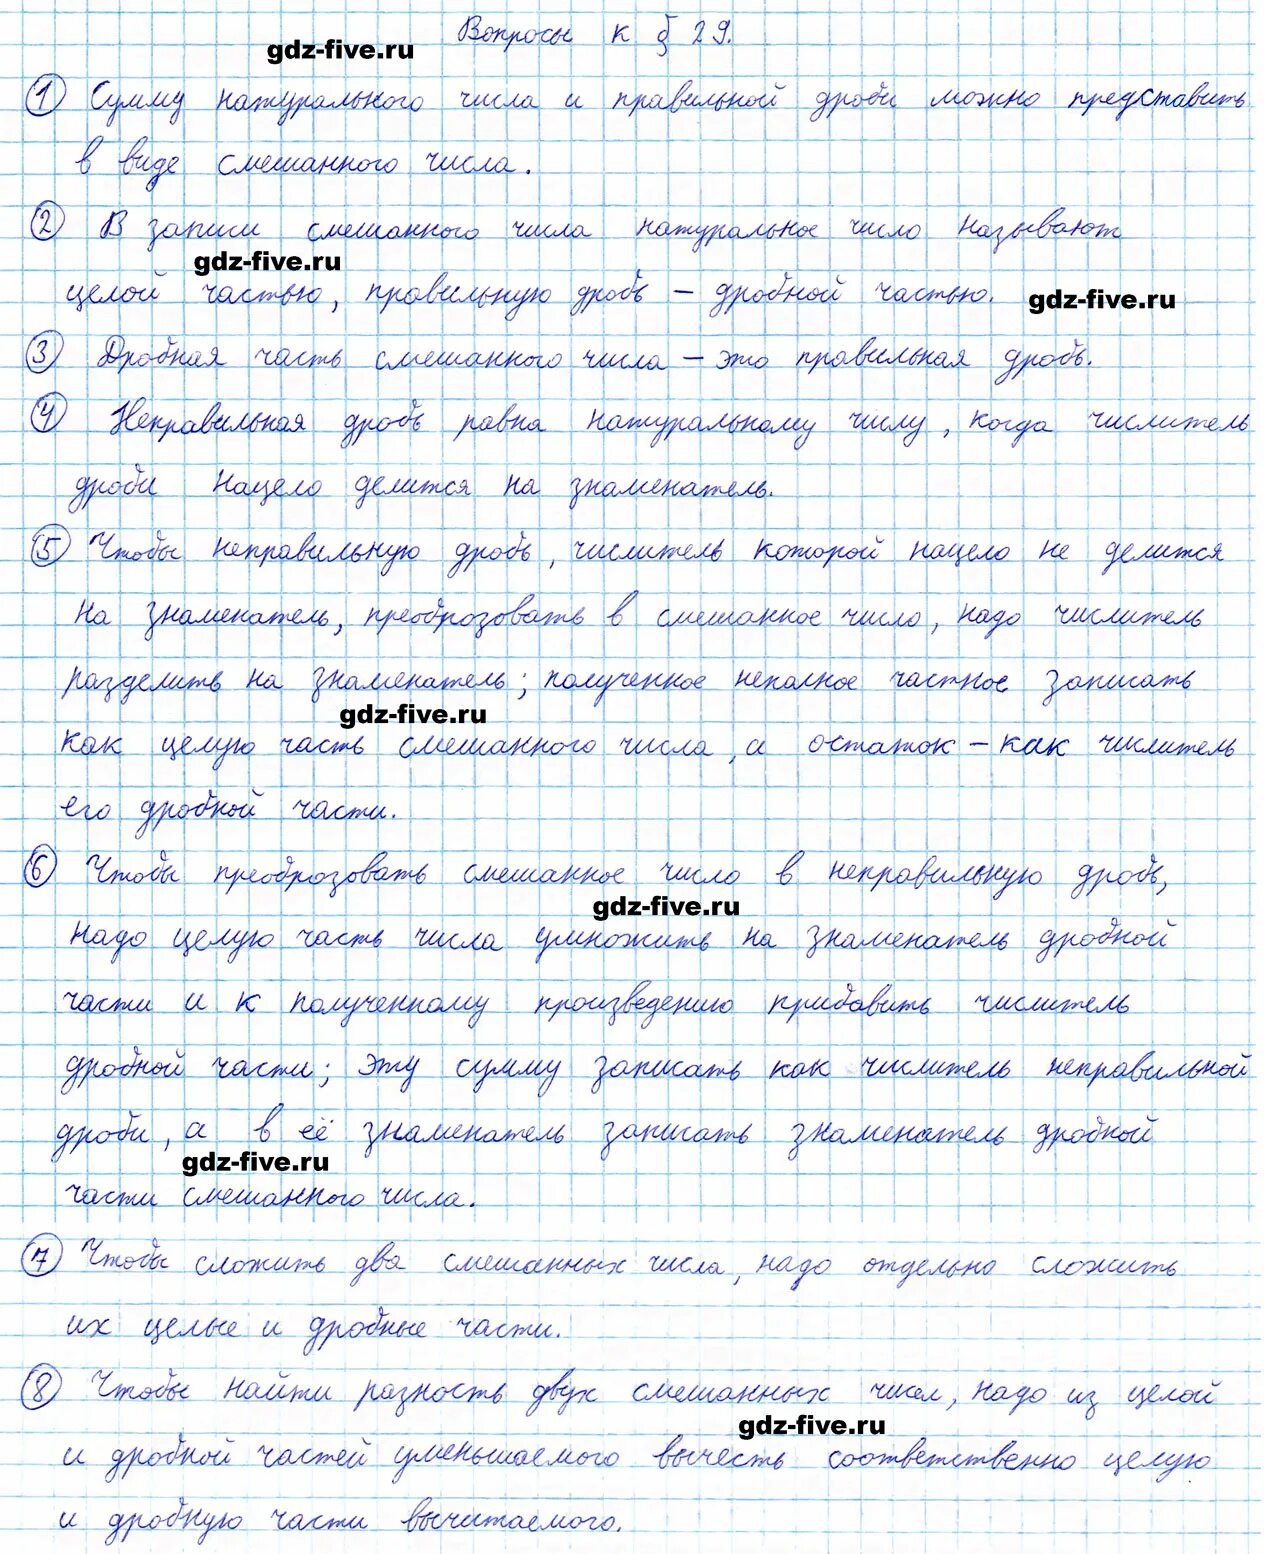 Вопросы к § 29.
gdz-five.ru
① Сумму натурального числа и правильной дроби можно представить
в виде смешанного числа.
② В записи смешанного числа натуральное число называют
gdz-five.ru
целой частью, правильную дробь – дробной частью.
gdz-five.ru
③ Дробная часть смешанного числа – это правильная дробь.
④ Неправильная дробь равна натуральному числу, когда числитель
дроби нацело делится на знаменатель.
⑤ Чтобы неправильную дробь, числитель которой нацело не делится
на знаменатель, преоброзовать в смешанное число, надо числитель
разделить на знаменатель; полученное неполное частное записать
gdz-five.ru
как целую часть смешанного числа, а остаток – как числитель
его дробной части.
⑥ Чтобы преоброзовать смешанное число в неправильную дробь,
gdz-five.ru
надо целую часть числа умножить на знаменатель дробной
части и к полученному произведению прибавить числитель
дробной части; эту сумму записать как числитель неправильной
дроби, а в её знаменатель записать знаменатель дробной
gdz-five.ru
части смешанного числа.
⑦ Чтобы сложить два смешанных числа, надо отдельно сложить
их целые и дробные части.
⑧ Чтобы найти разность двух смешанных чисел, надо из целой
gdz-five.ru
и дробной частей уменьшаемого вычесть соответственно целую
и дробную части вычитаемого.